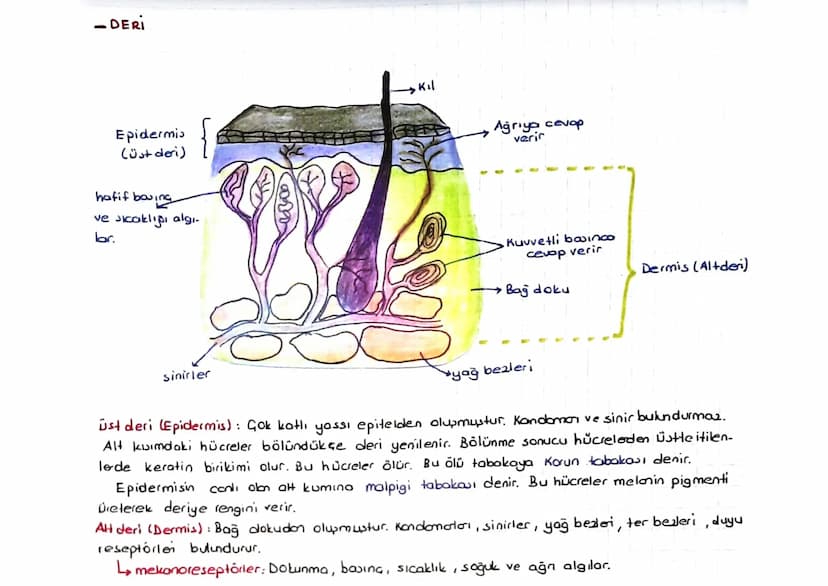 – DERİ
Kıl
Epidermis
(üst deri)
Ağrıya cevap
verir
hafif basınç
ve sıcaklığı algı-
lar.
Kuvvetli basınca
cevap verir
Dermis (Altderi)
Bağ doku
sinirler
yağ bezleri
üst deri (Epidermis) : Çok katlı yassı epitelden oluşmuştur. Kandamarı ve sinir bulundurmaz.
Alt kısımdaki hücreler bölündükçe deri yenilenir. Bölünme sonucu hücrelerden üstte itilen-
lerde keratin birikimi olur. Bu hücreler ölür. Bu ölü tabakaya Korun tabakası denir.
Epidermisin canlı olan alt kısmına malpigi tabakası denir. Bu hücreler melanin pigmenti
üreterek deriye rengini verir.
Alt deri (Dermis) : Bağ dokudan oluşmuştur. Kandamarları, sinirler, yağ bezleri, ter bezleri, duyu
reseptörleri bulundurur.
↳ mekanoreseptörler: Dokunma, basınç, sıcaklık, soğuk ve ağrı algılar.